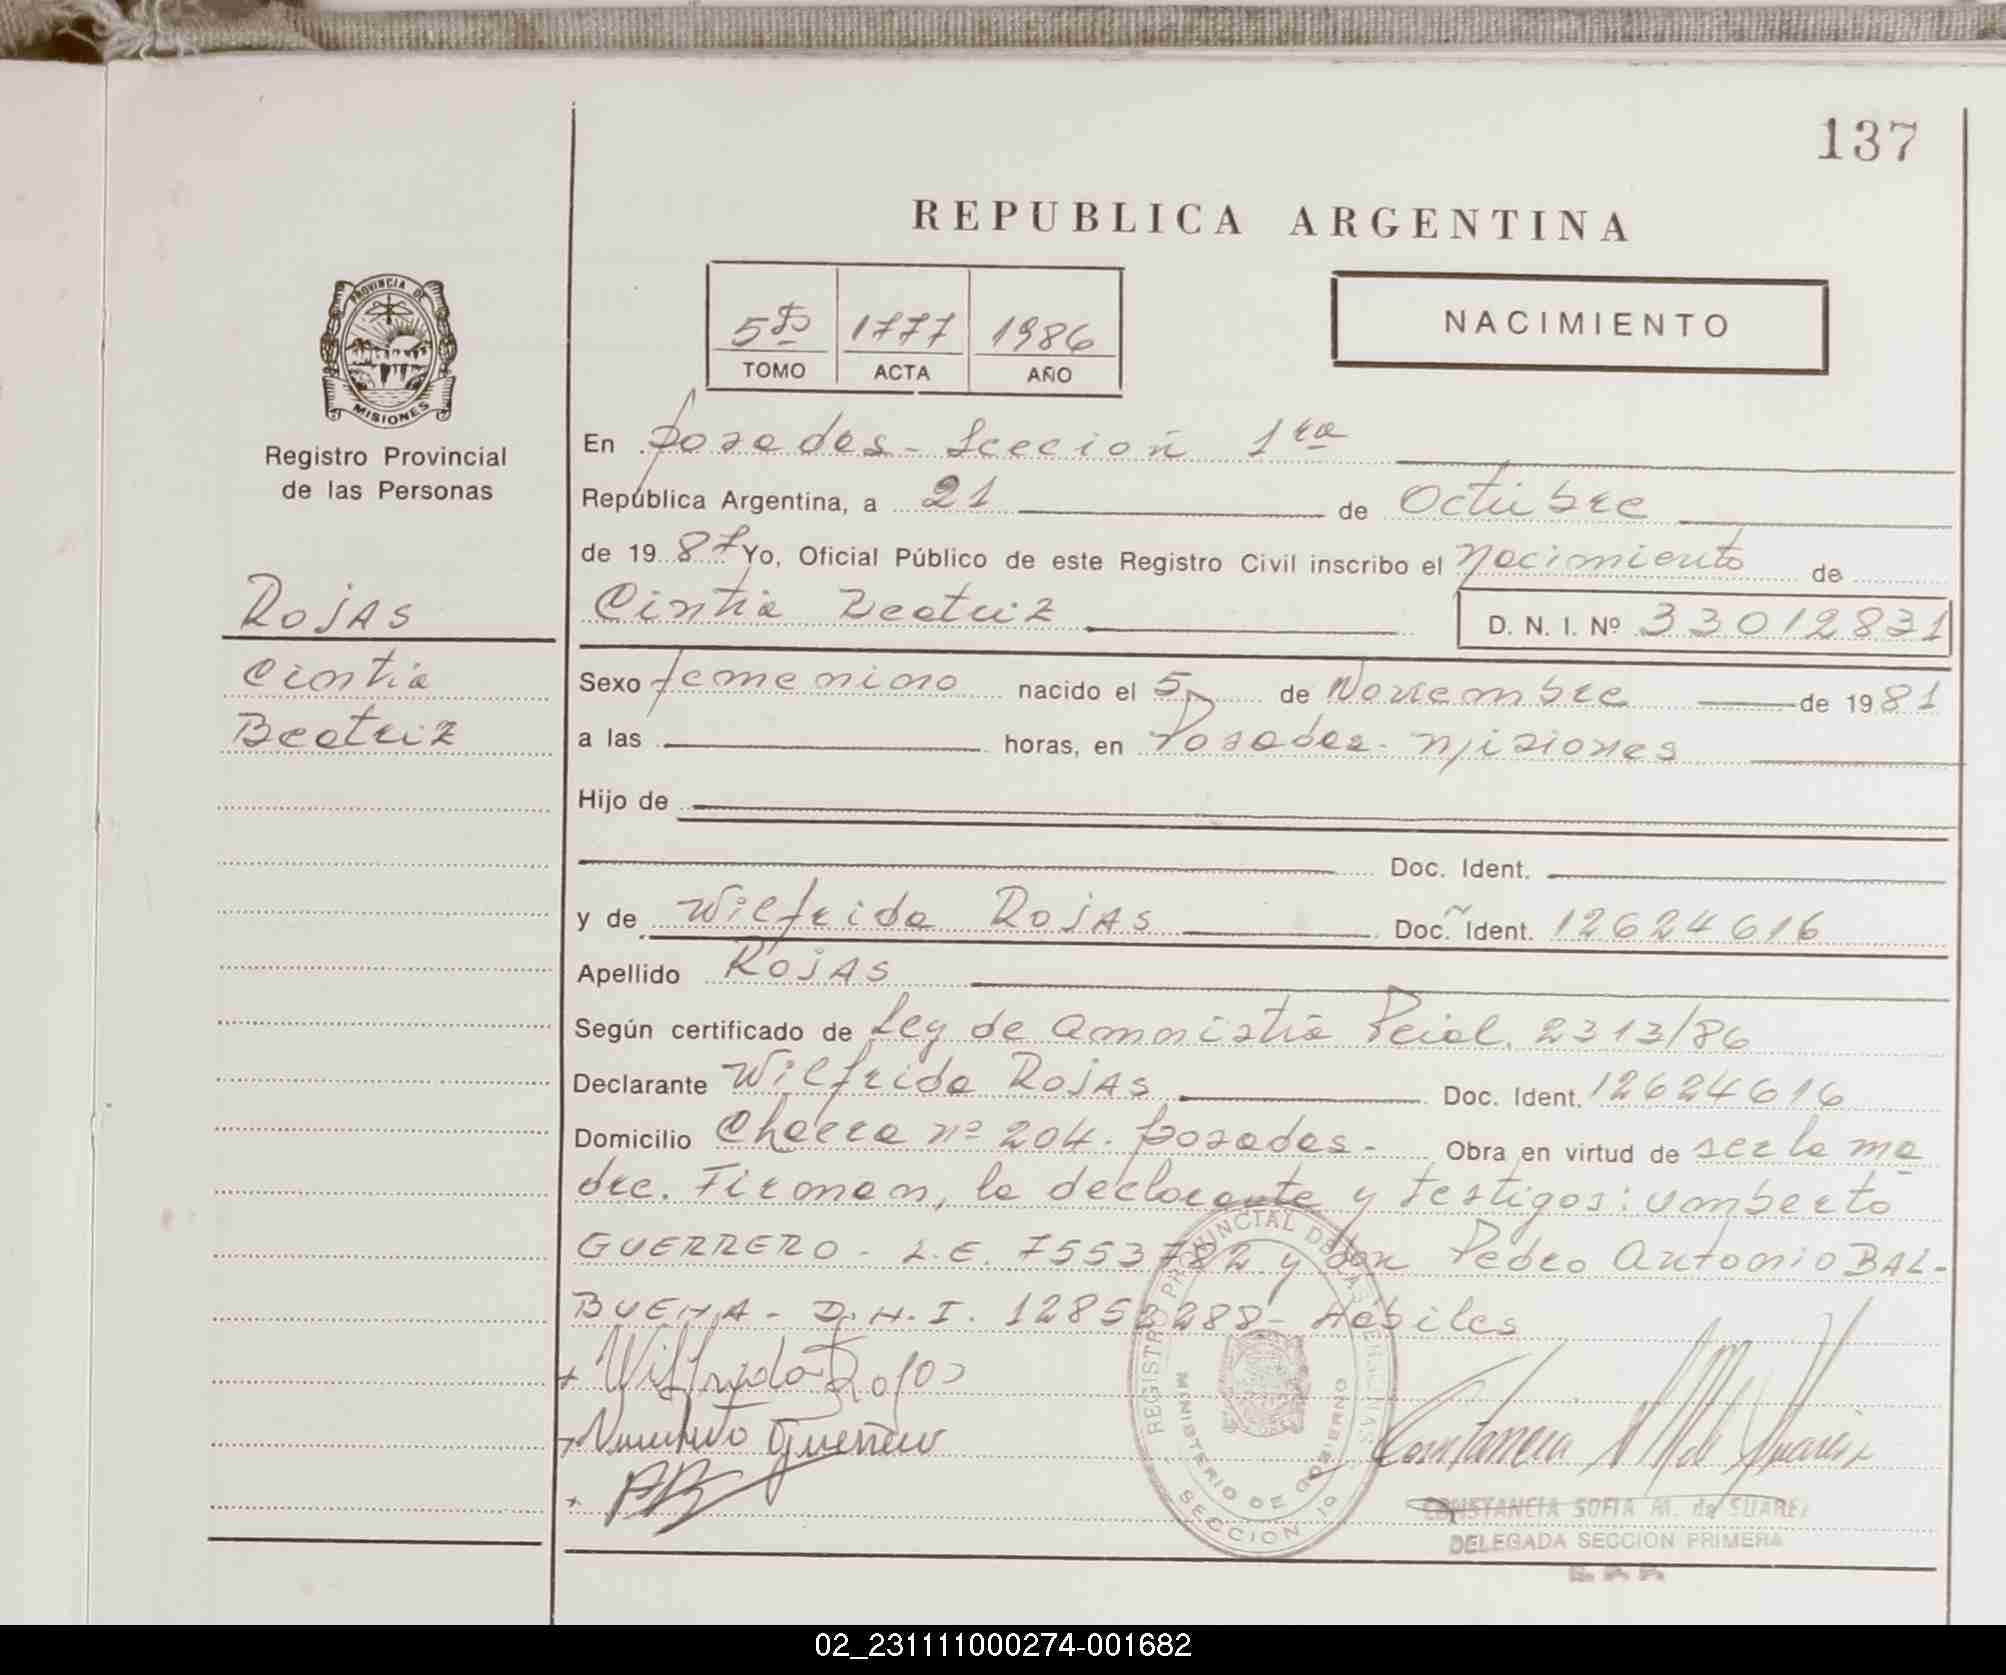 137
REPUBLICA ARGENTINA
PROVINCIA DE
MISIONES
Registro Provincial
de las Personas
5to 1777 1986
TOMO ACTA AÑO
NACIMIENTO
En Posadas - Sección 1ra
República Argentina, a 21 de Octubre
de 19 87 Yo, Oficial Público de este Registro Civil inscribo el Nacimiento de
Rojas
Cintia Beatriz D. N. I. Nº 33012831
Cintia
Beatriz
Sexo femenino nacido el 5 de Noviembre de 19 81
a las horas, en Posadas - Misiones
Hijo de
Doc. Ident.
y de Wilfrida Rojas Doc. Ident. 12624616
Apellido Rojas
Según certificado de Ley de Amnistia Pcial. 2313/86
Declarante Wilfrida Rojas Doc. Ident. 12624616
Domicilio Chacra nº 204. Posadas - Obra en virtud de ser la ma
dre. Firman, la declarante y testigos: Umberto
GUERRERO - L.E. 7553782 y don Pedro Antonio BAL-
BUENA - D.N.I. 12852288 - Hábiles
+ Wilfrida Rojas
+ Numberto Guerrero
+ PB
REGISTRO PROVINCIAL DE LAS PERSONAS
MINISTERIO DE GOBIERNO
SECCION 1º
Constancia M de Suarez
CONSTANCIA SOFIA M. de SUAREZ
DELEGADA SECCION PRIMERA
R. P. P.
02_231111000274-001682